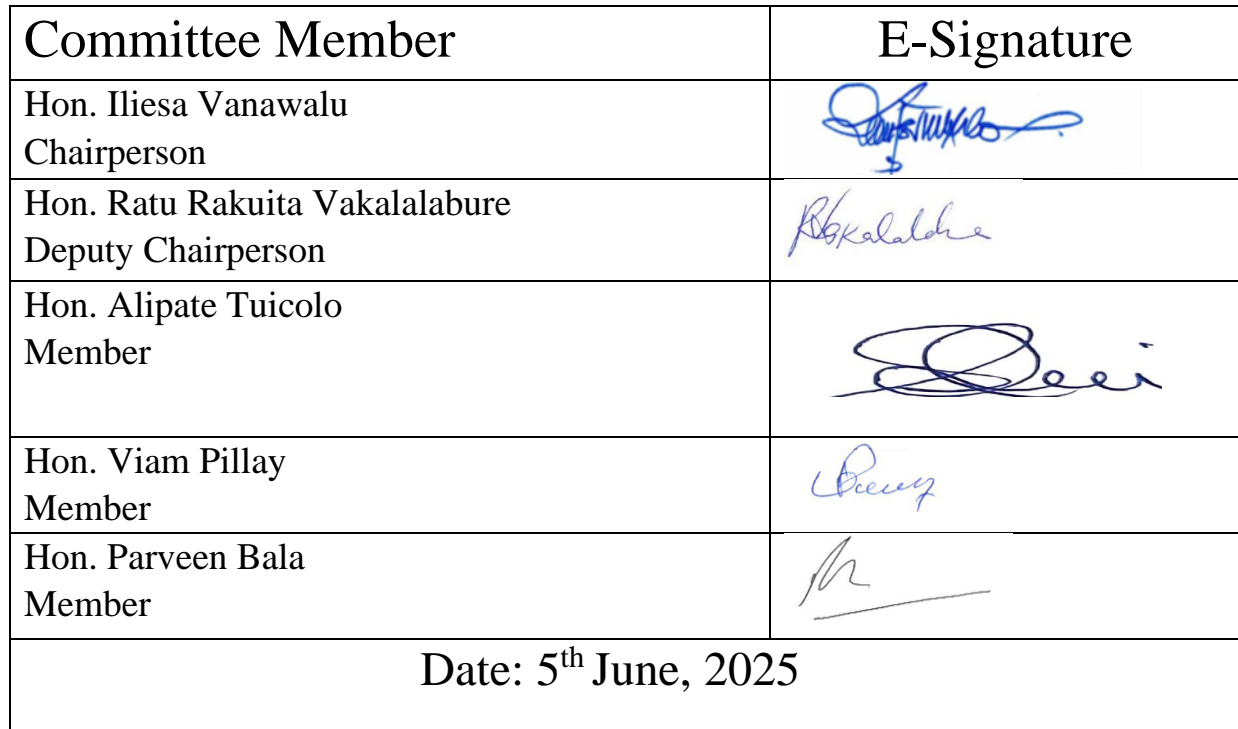 Committee Member E-Signature
Hon. Iliesa Vanawalu
Chairperson
Hon. Ratu Rakuita Vakalalabure
Deputy Chairperson
Hon. Alipate Tuicolo
Member
Hon. Viam Pillay
Member
Hon. Parveen Bala
Member
Date: 5th June, 2025